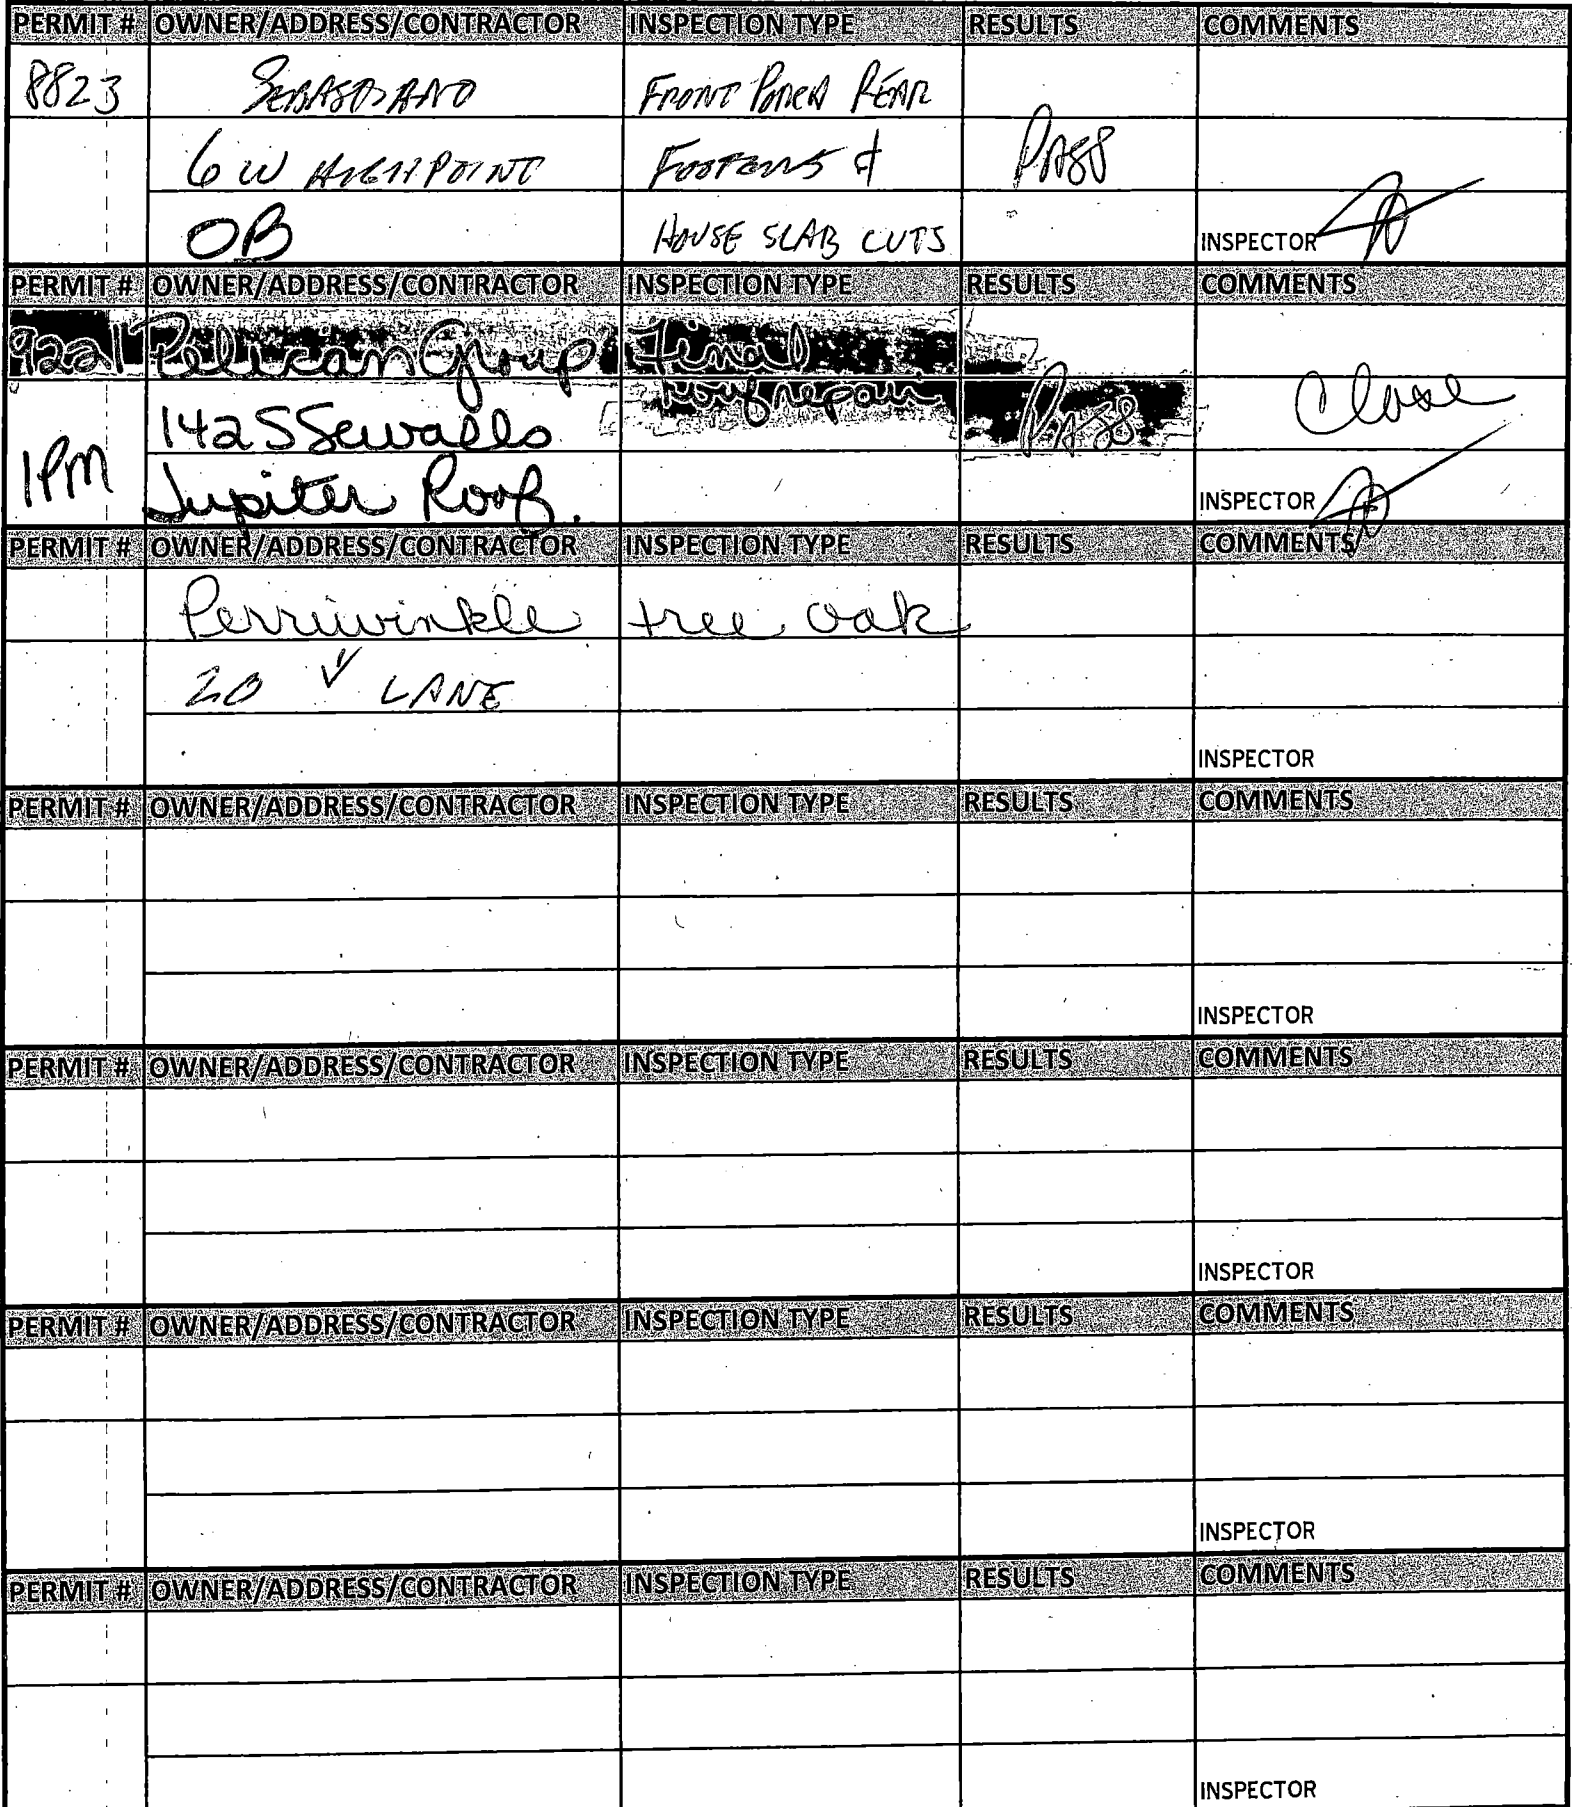 PERMIT # OWNER/ADDRESS/CONTRACTOR INSPECTION TYPE RESULTS COMMENTS
8823 FRONT PORCH REAR
6 W HIGH POINT FOOTERS & PASS
OB HOUSE SLAB CUTS INSPECTOR
PERMIT # OWNER/ADDRESS/CONTRACTOR INSPECTION TYPE RESULTS COMMENTS
9221 Pelican Group Final
142 S Sewalls roof repair PASS Close
1PM Jupiter Roof. INSPECTOR
PERMIT # OWNER/ADDRESS/CONTRACTOR INSPECTION TYPE RESULTS COMMENTS
Perriwinkle tree oak
20 LANE
INSPECTOR
PERMIT # OWNER/ADDRESS/CONTRACTOR INSPECTION TYPE RESULTS COMMENTS
INSPECTOR
PERMIT # OWNER/ADDRESS/CONTRACTOR INSPECTION TYPE RESULTS COMMENTS
INSPECTOR
PERMIT # OWNER/ADDRESS/CONTRACTOR INSPECTION TYPE RESULTS COMMENTS
INSPECTOR
PERMIT # OWNER/ADDRESS/CONTRACTOR INSPECTION TYPE RESULTS COMMENTS
INSPECTOR